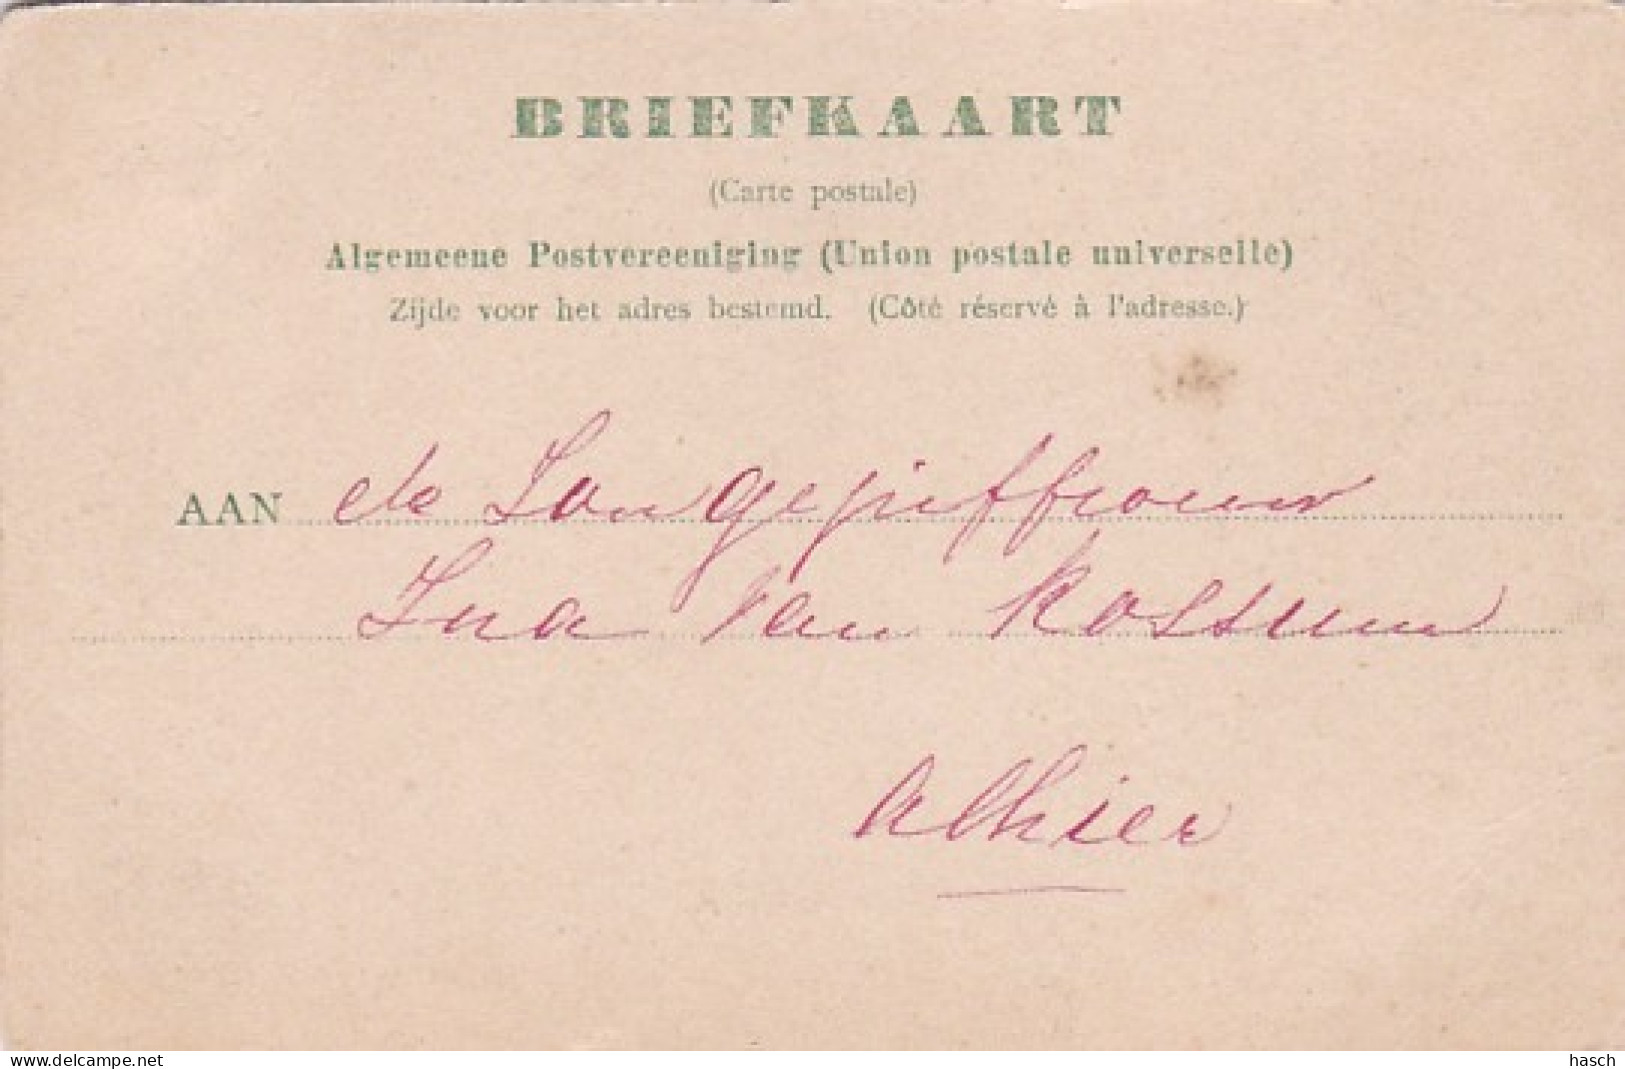 BRIEFKAART
(Carte postale)
Algemeene Postvereeniging (Union postale universelle)
Zijde voor het adres bestemd. (Côté réservé à l'adresse.)
AAN de Jongejuffrouw
Ina van Rossum
Alhier
www.delcampe.net
hasch